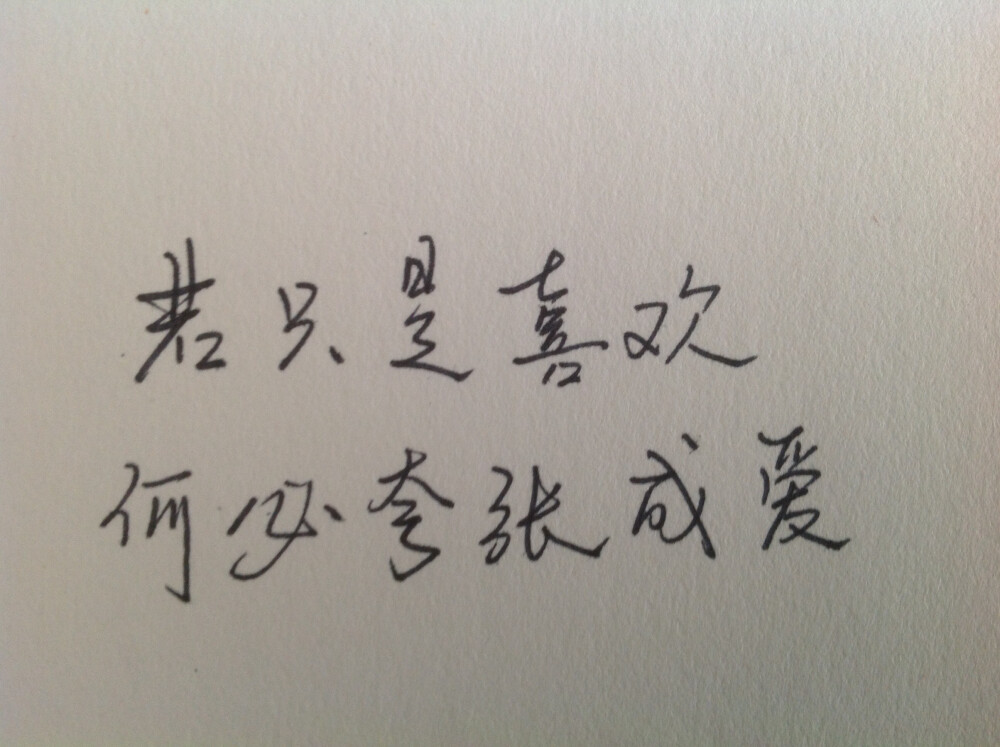 若只是喜欢
何必夸张成爱